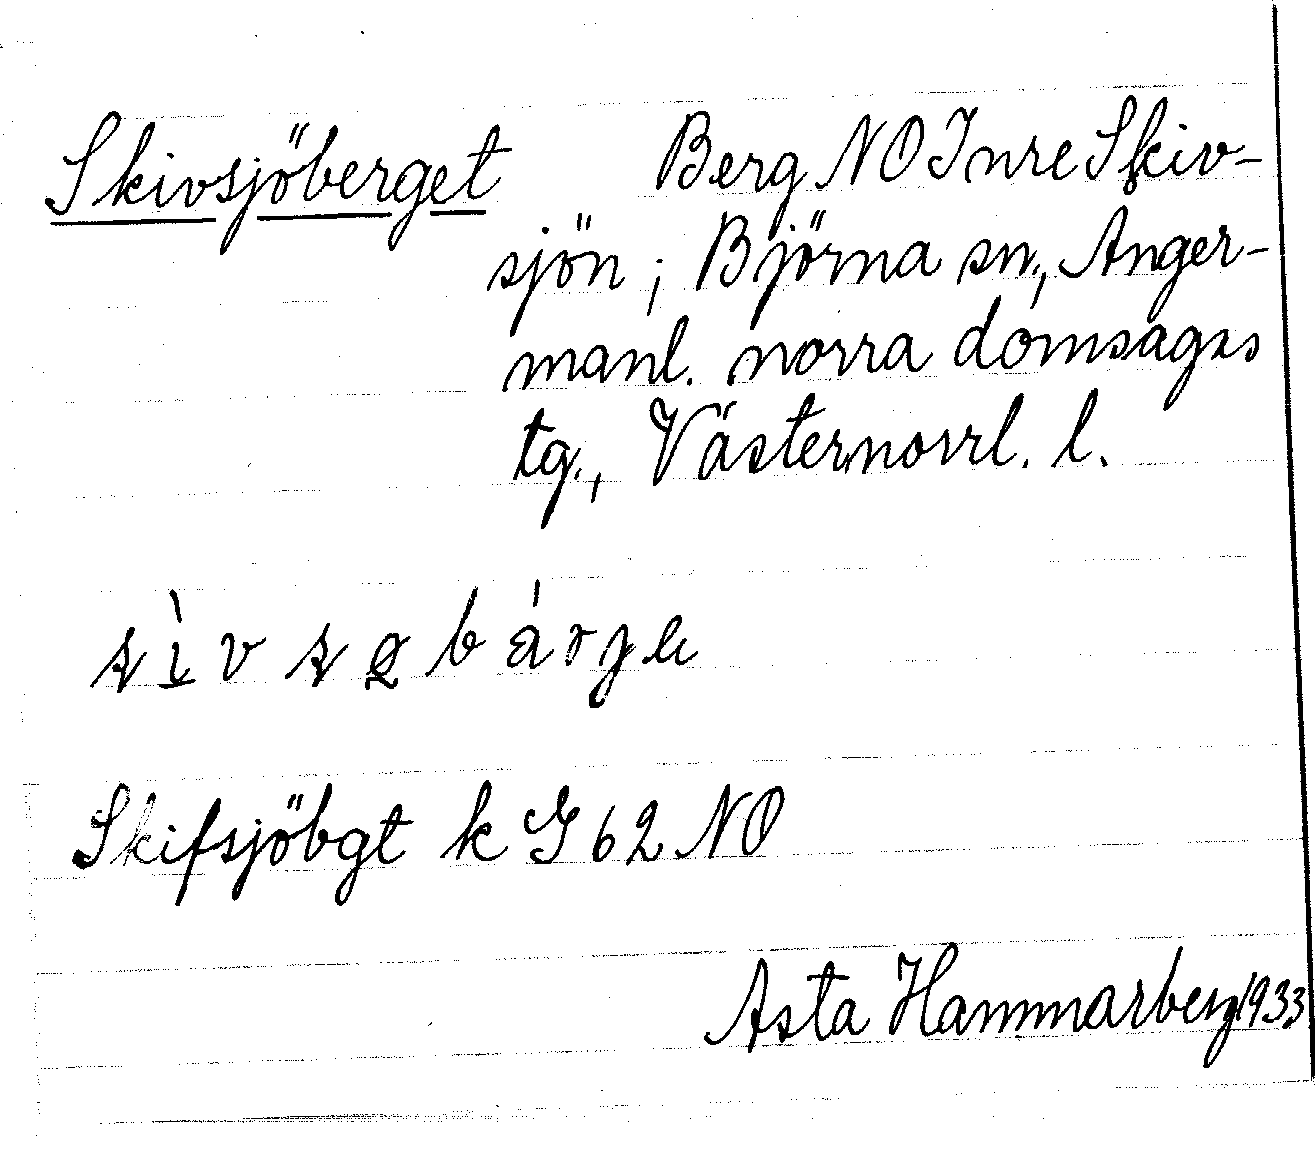 Skivsjöberget Berg NO Inre Skiv-
sjön; Björna sn, Ånger-
manl. norra domsagas
tg., Västernorrl. l.
Skifsjöbgt k G 62 NO
Asta Hammarberg 1933